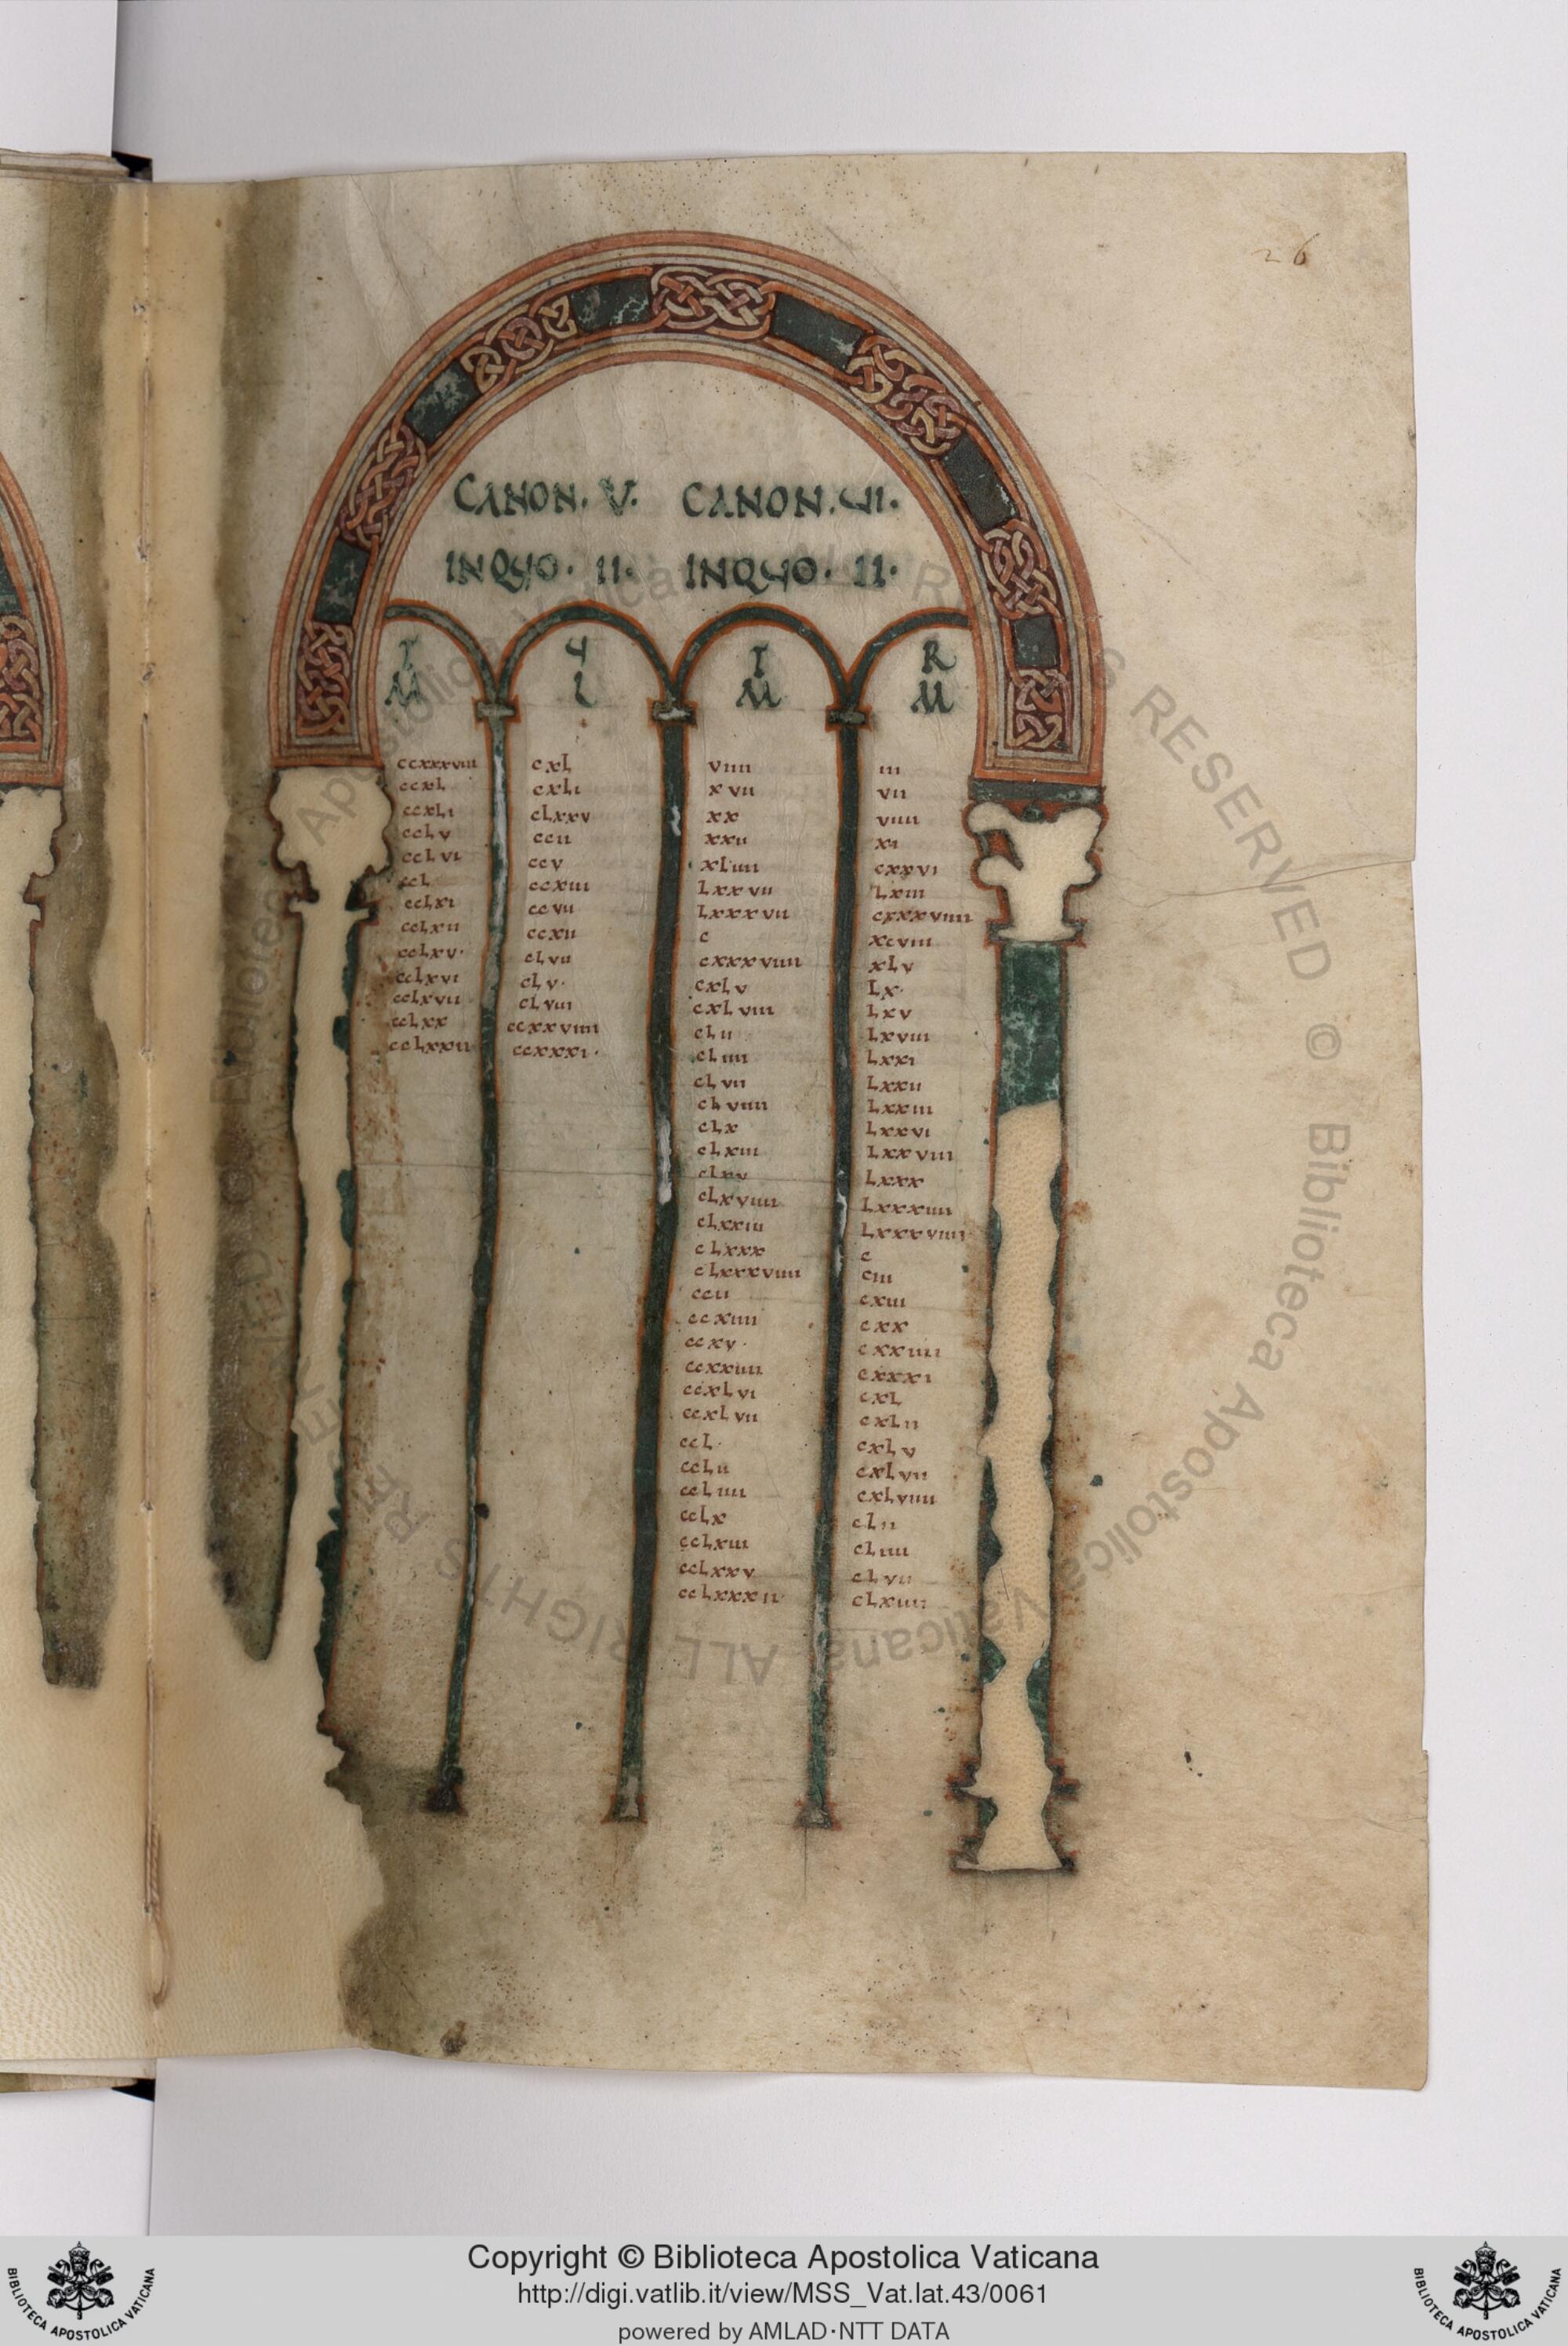 26
CANON. V. CANON. VI.
INQUO. II. INQUO. II.
T U T R
M L M M
ccxxxviii cxl viiii iii
ccxl cxli xvii vii
ccxli clxxv xx viiii
cclv ccii xxii xi
cclvi ccv xliiii cxxvi
ccl ccxiii lxxvii lxiii
cclxi ccvii lxxxvii cxxxviiii
cclxii ccxii c xcviii
cclxv. clvii cxxxviiii xlv
cclxvi clv. cxlv lx.
cclxvii clviii cxlviii lxv
cclxx ccxxviiii clii lxviii
cclxxii ccxxxi. cliiii lxxi
clvii lxxii
clviiii lxxiii
clx lxxvi
clxiii lxxviii
clxv lxxx
clxviiii lxxxiiii
clxxiii lxxxviiii
clxxx c
clxxxviiii ciii
ccii cxiii
ccxiiii cxx
ccxv. cxxiiii
ccxxiiii cxxxi
ccxlvi cxl
ccxlvii cxlii
ccl. cxlv
cclii cxlvii
ccliiii cxlviiii
cclx clii
cclxiii cliiii
cclxxv clvii
cclxxxii clxiiii
Copyright © Biblioteca Apostolica Vaticana
http://digi.vatlib.it/view/MSS_Vat.lat.43/0061
powered by AMLAD·NTT DATA
BIBLIOTECA APOSTOLICA VATICANA
BIBLIOTECA APOSTOLICA VATICANA